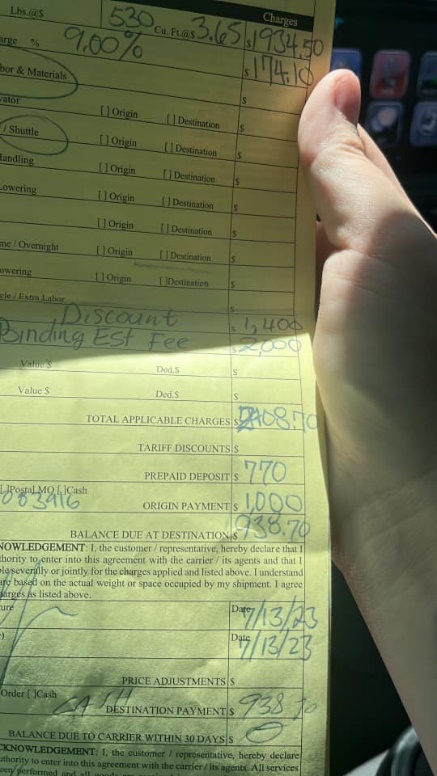 Lbs.@$ 530 Cu. Ft.@$ 3.65 Charges $1934.50
arge % 9.00% $174.10
bor & Materials $
vator [ ] Origin [ ] Destination $
/ Shuttle [ ] Origin [ ] Destination $
andling [ ] Origin [ ] Destination $
owering [ ] Origin [ ] Destination $
[ ] Origin [ ] Destination $
me / Overnight [ ] Origin [ ] Destination $
owering [ ] Origin [ ]Destination $
cle / Extra Labor $
Discount $ 1,400
Binding Est Fee $ 2,000
Value $ Ded.$ $
Value $ Ded.$ $
TOTAL APPLICABLE CHARGES $ 2708.70
TARIFF DISCOUNTS $
PREPAID DEPOSIT $ 770
[ ]Postal MO [ ]Cash
083916 ORIGIN PAYMENT $ 1,000
BALANCE DUE AT DESTINATION $ 938.70
NOWLEDGEMENT: I, the customer / representative, hereby declare that I
thority to enter into this agreement with the carrier / its agents and that I
ble severally or jointly for the charges applied and listed above. I understand
are based on the actual weight or space occupied by my shipment. I agree
harges as listed above.
ure Date 7/13/23
) Date 7/13/23
PRICE ADJUSTMENTS $
Order [ ]Cash CASH DESTINATION PAYMENT $ 938.70
BALANCE DUE TO CARRIER WITHIN 30 DAYS $ 0
CKNOWLEDGEMENT: I, the customer / representative, hereby declare
uthority to enter into this agreement with the carrier / its agents. All services